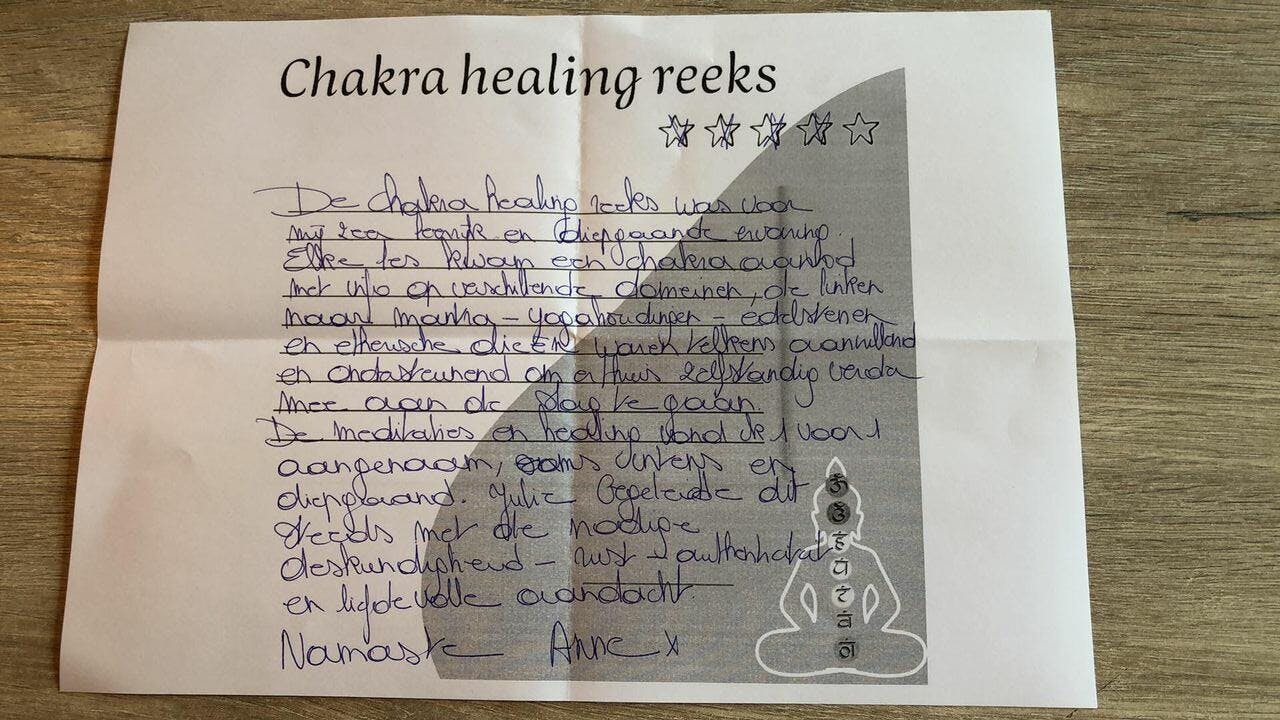 Chakra healing reeks
De chakra healing reeks was voor
mij zeer leerrijk en diepgaande ervaring.
Elke les kwam een chakra aanbod
met info op verschillende domeinen, de linken
naar mantra - yogahoudingen - edelstenen
en etherische olieën waren telkens aanvullend
en ondersteunend om er thuis zelfstandig verder
mee aan de slag te gaan.
De meditaties en healing vond ik 1 voor 1
aangenaam, soms intens en
diepgaand. Julie begeleidde dit
steeds met de nodige
deskundigheid - rust - authenticiteit
en liefdevolle aandacht
Namaste Anne x
ॐ
ॐ
हं
यं
रं
वं
लं